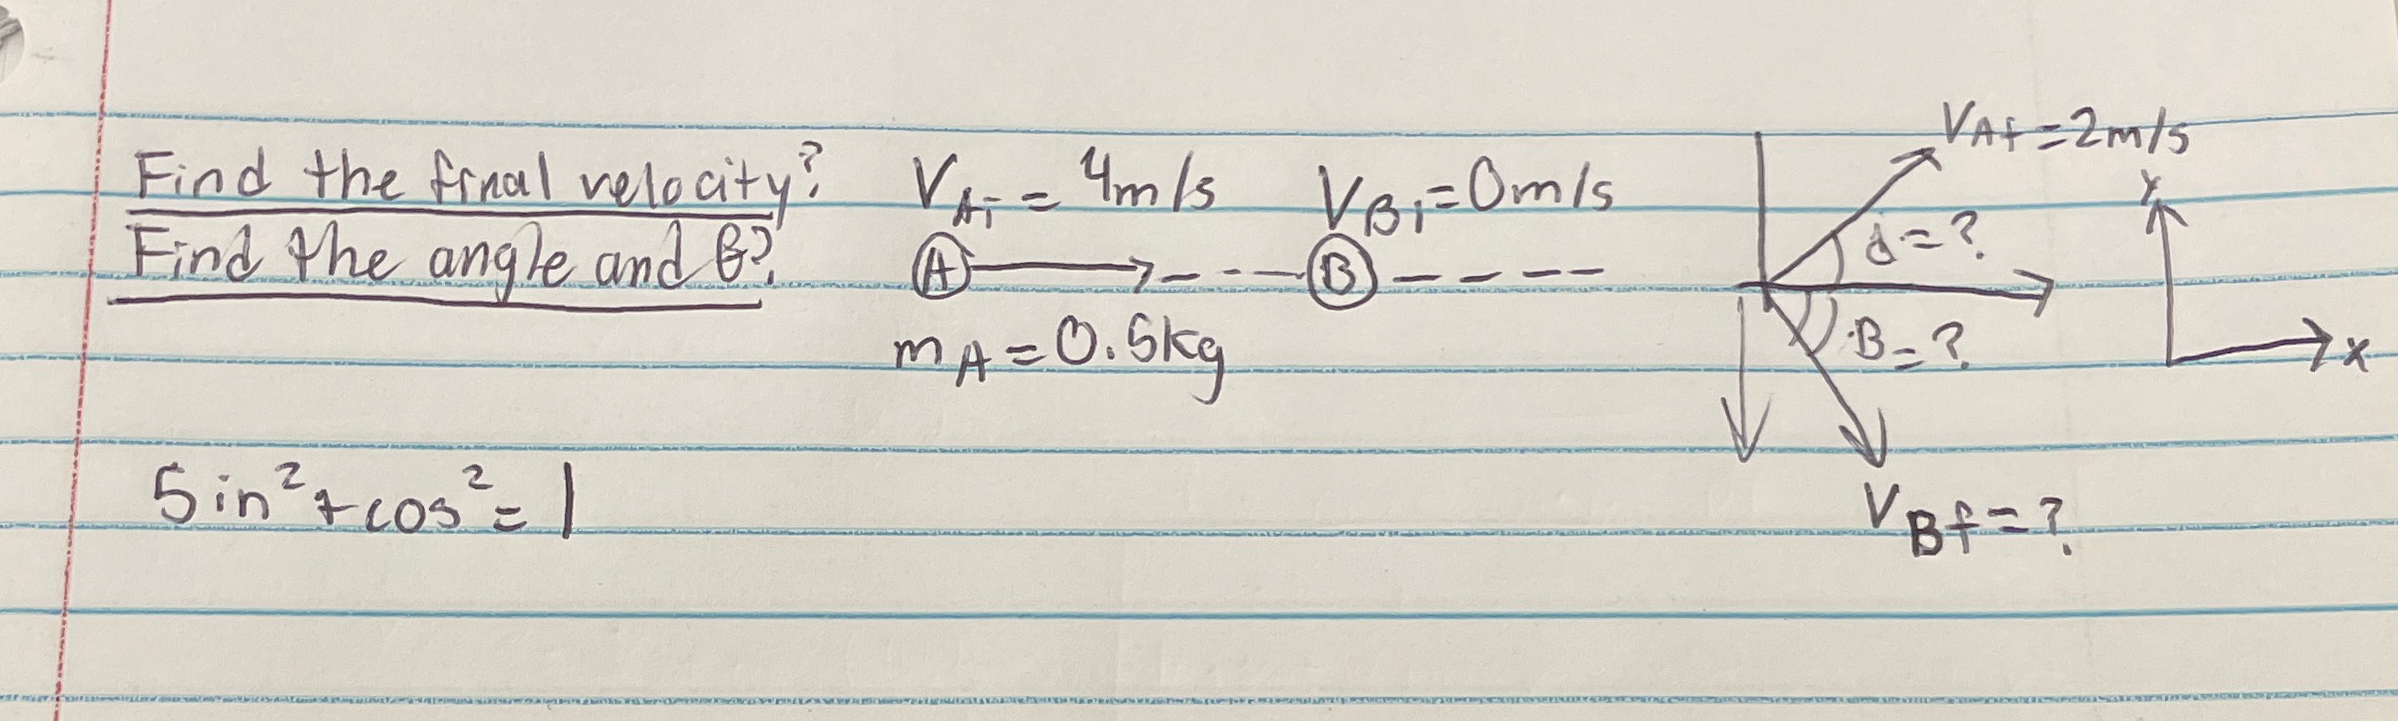 Find the final velocity?
Find the angle and β?
V_Ai = 4m/s
V_Bi = 0m/s
A
B
m_A = 0.5kg
V_Af = 2m/s
α = ?
B = ?
V_Bf = ?
y
x
Sin² + cos² = 1